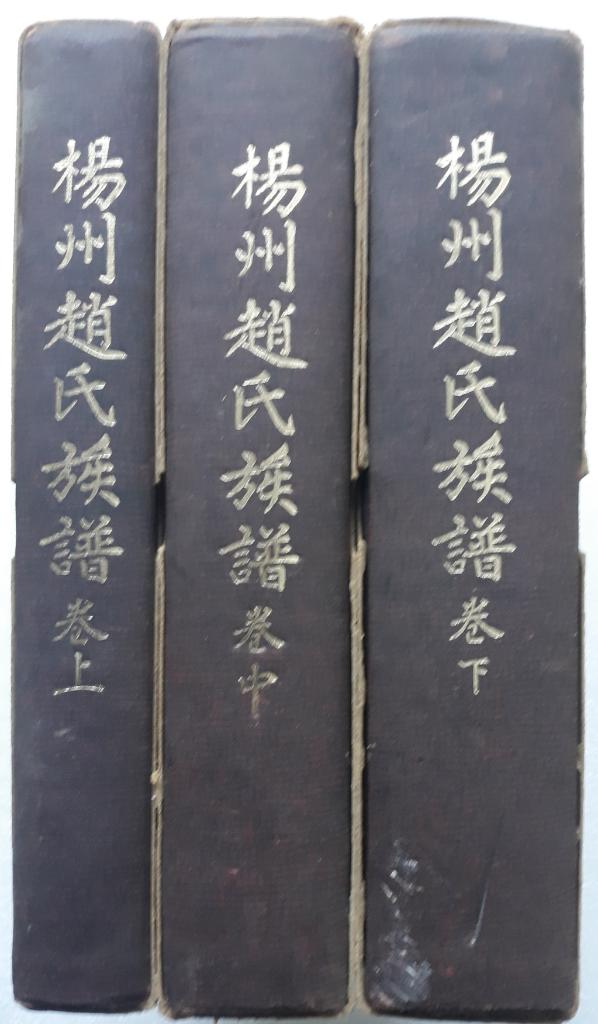 楊州趙氏族譜 卷上
楊州趙氏族譜 卷中
楊州趙氏族譜 卷下